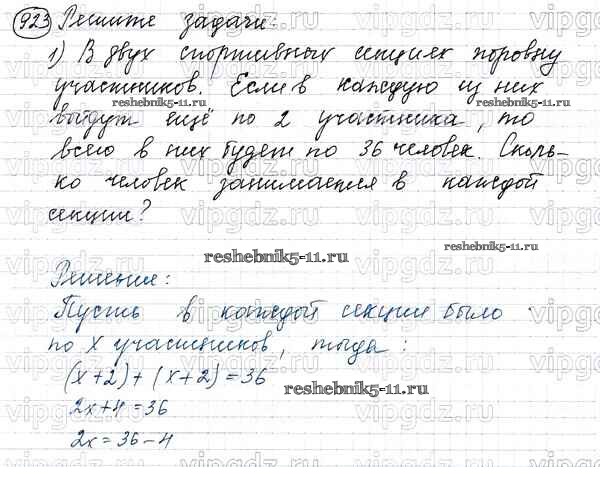 923 Решите задачи:
1) В двух спортивных секциях поровну
участников. Если в каждую из них
reshebnik5-11.ru
войдут ещё по 2 участника, то
всего в них будет по 36 человек. Сколь-
ко человек занимается в каждой
секции?
reshebnik5-11.ru
reshebnik5-11.ru
Решение:
Пусть в каждой секции было
по х участников, тогда:
(х+2)+(х+2)=36
reshebnik5-11.ru
2х+4=36
2х=36-4